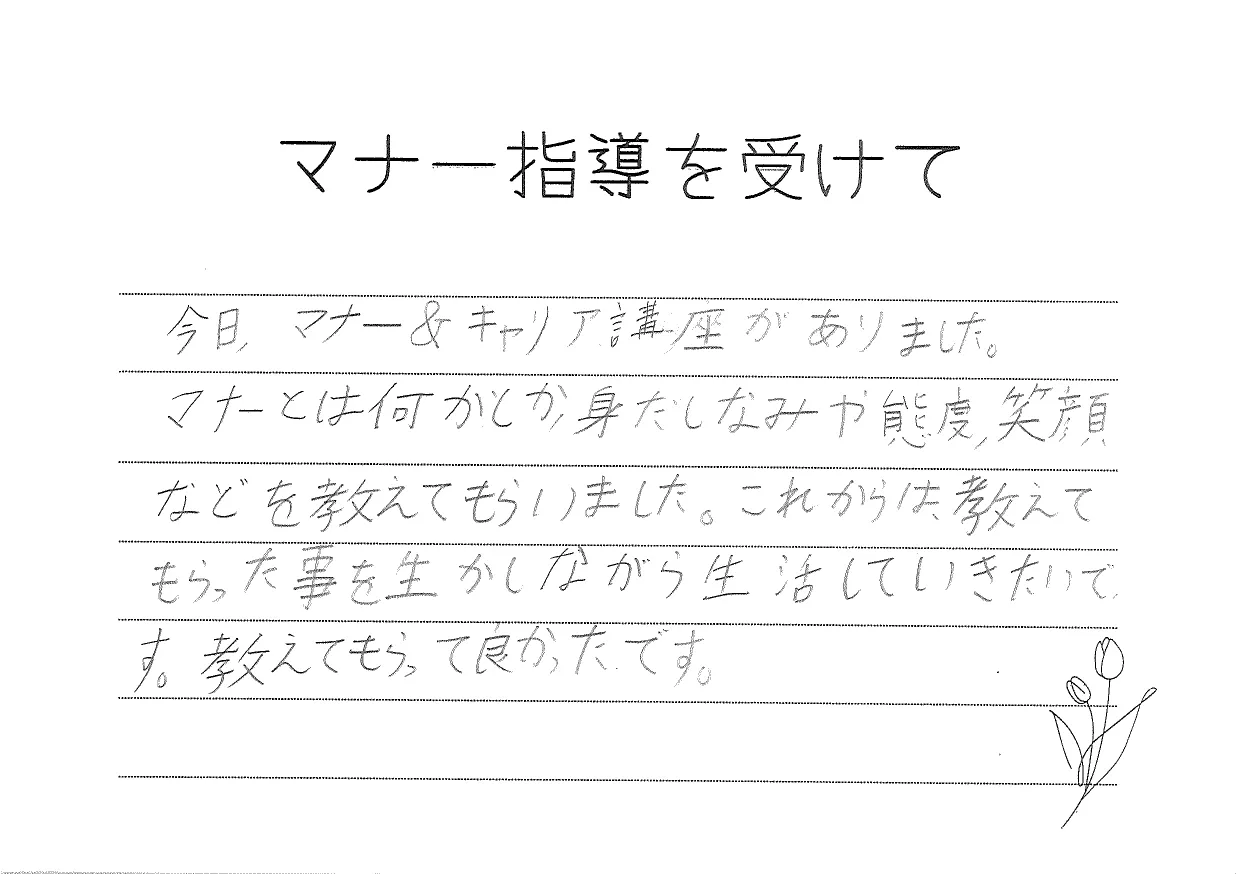 マナー指導を受けて
今日、マナー&キャリア講座がありました。
マナーとは何かとか、身だしなみや態度、笑顔
などを教えてもらいました。これからは、教えて
もらった事を生かしながら生活していきたいで
す。教えてもらって良かったです。